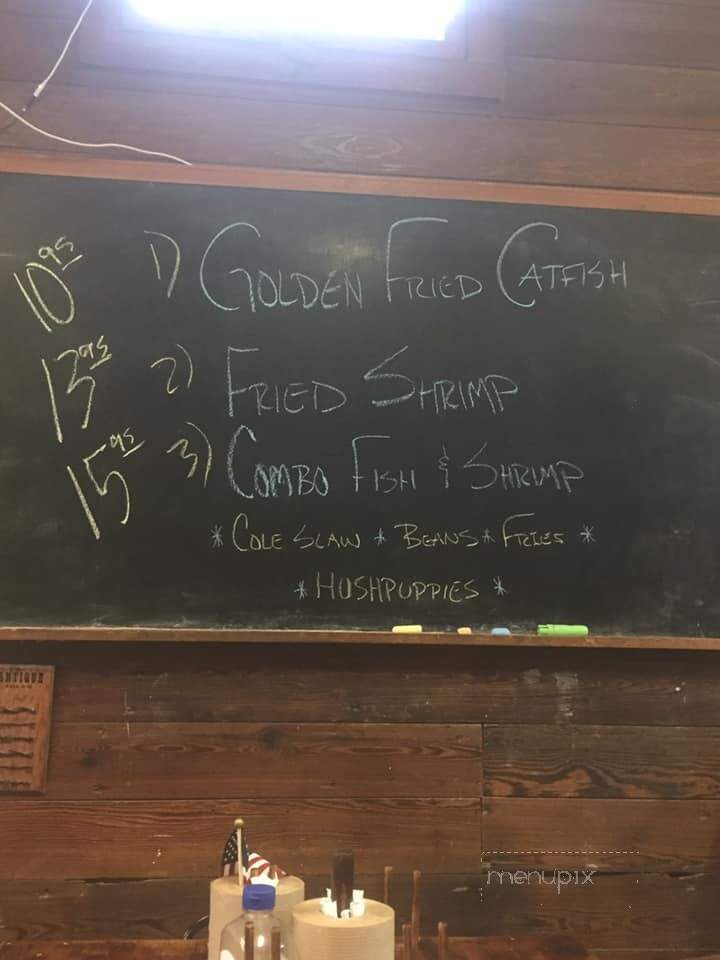 10 95 1) GOLDEN FRIED CATFISH
13 95 2) FRIED SHRIMP
15 95 3) COMBO FISH & SHRIMP
* COLE SLAW * BEANS * FRIES *
* HUSHPUPPIES *
menupix